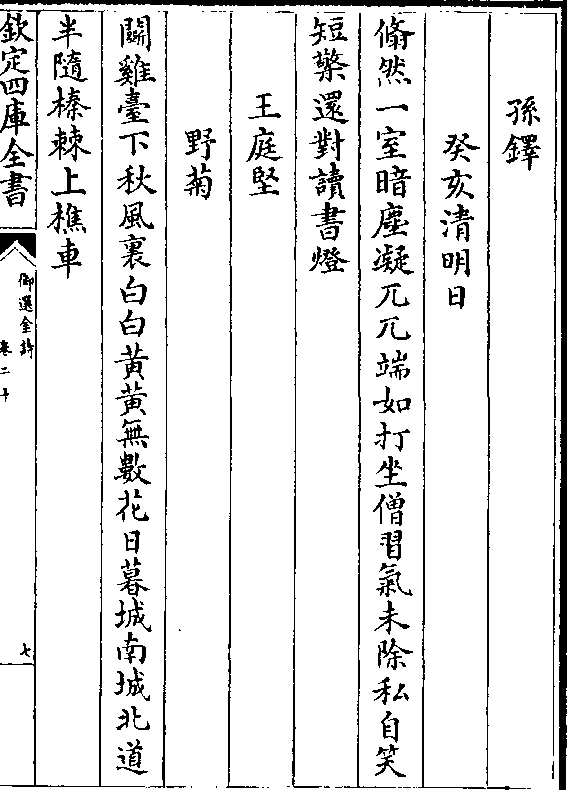 孫鐸
癸亥清明日
翛然一室暗塵凝兀兀端如打坐僧習氣未除私自笑
短檠還對讀書燈
王庭堅
野菊
鬭雞臺下秋風裏白白黃黃無數花日暮城南城北道
半隨榛棘上樵車
欽定四庫全書
御選金詩
卷二十
七